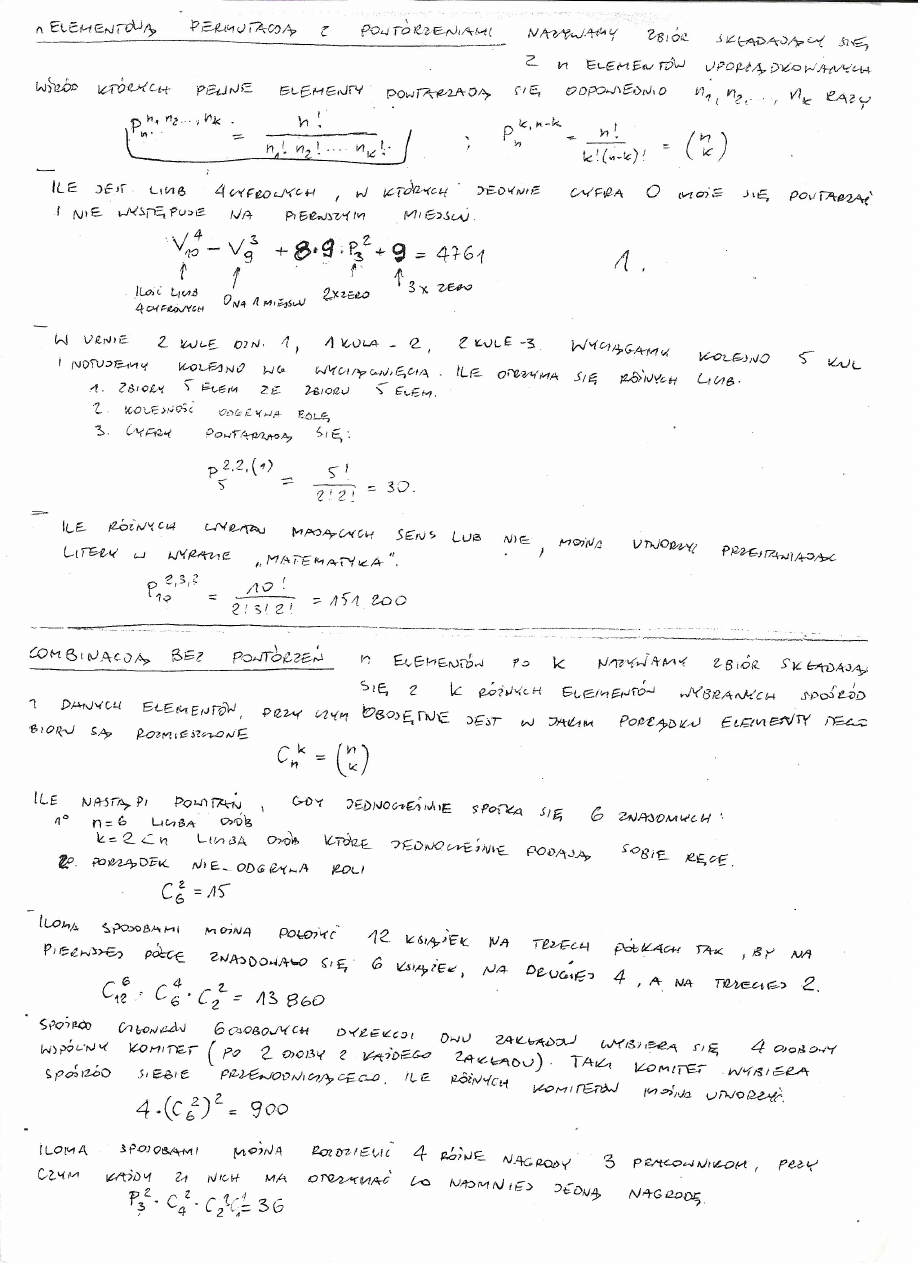 n ELEMENTOWĄ PERMUTACJĄ Z POWTÓRZENIAMI NAZYWAMY ZBIÓR SKŁADAJĄCY SIĘ
Z n ELEMENTÓW UPORZĄDKOWANYCH
WŚRÓD KTÓRYCH PEWNE ELEMENTY POWTARZAJĄ SIĘ ODPOWIEDNIO n₁, n₂, ..., nₖ RAZY
Pₙ^{n₁ n₂ ..., nₖ} = n! / (n₁! n₂! .... nₖ!) ; Pₙ^{k, n-k} = n! / (k!(n-k)!) = (n k)
ILE JEST LICZB 4 CYFROWYCH, W KTÓRYCH JEDYNIE CYFRA 0 MOŻE SIĘ POWTARZAĆ
I NIE WYSTĘPUJE NA PIERWSZYM MIEJSCU.
V₁₀⁴ − V₉³ + 8·9·P₃² + 9 = 4761 1.
ILOŚĆ LICZB 4 CYFROWYCH 0 NA 1 MIEJSCU 2 X ZERO 3 X ZERO
W URNIE 2 KULE OZN. 1, 1 KULA - 2, 2 KULE - 3. WYCIĄGAMY KOLEJNO 5 KUL
I NOTUJEMY KOLEJNO WG WYCIĄGNIĘCIA. ILE OTRZYMA SIĘ RÓŻNYCH LICZB.
1. ZBIORY 5 ELEM ZE ZBIORU 5 ELEM.
2. KOLEJNOŚĆ ODGRYWA ROLĘ
3. CYFRY POWTARZAJĄ SIĘ:
P₅^{2,2,(1)} = 5! / (2! 2!) = 30.
ILE RÓŻNYCH WYRAZÓW MAJĄCYCH SENS LUB NIE, MOŻNA UTWORZYĆ PRZESTAWIAJĄC
LITERY W WYRAZIE „MATEMATYKA".
P₁₀^{2,3,2} = 10! / (2! 3! 2!) = 151 200
COMBINACJĄ BEZ POWTÓRZEŃ n ELEMENTÓW PO K NAZYWAMY ZBIÓR SKŁADAJĄ
SIĘ Z K RÓŻNYCH ELEMENTÓW WYBRANYCH SPOŚRÓD
DANYCH ELEMENTÓW, PRZY CZYM OBOJĘTNE JEST W JAKIM PORZĄDKU ELEMENTY TEGO
BIORU SĄ ROZMIESZCZONE
Cₙᵏ = (n k)
ILE NASTĄPI POWITAŃ, GDY JEDNOCZEŚNIE SPOTKA SIĘ 6 ZNAJOMYCH:
1° n=6 LICZBA OSÓB
k=2<n LICZBA OSÓB KTÓRE JEDNOCZEŚNIE PODAJĄ SOBIE RĘCE.
2°. PORZĄDEK NIE ODGRYWA ROLI
C₆² = 15
ILOMA SPOSOBAMI MOŻNA POŁOŻYĆ 12 KSIĄŻEK NA TRZECH PÓŁKACH TAK, BY NA
PIERWSZEJ PÓŁCE ZNAJDOWAŁO SIĘ 6 KSIĄŻEK, NA DRUGIEJ 4, A NA TRZECIEJ 2.
C₁₂⁶ · C₆⁴ · C₂² = 13 860
SPOŚRÓD CZŁONKÓW 6 OSOBOWYCH DYREKCJI DWU ZAKŁADÓW WYBIERA SIĘ 4 OSOBOWY
WSPÓLNY KOMITET (PO 2 OSOBY Z KAŻDEGO ZAKŁADU). TAKI KOMITET WYBIERA
SPOŚRÓD SIEBIE PRZEWODNICZĄCEGO. ILE RÓŻNYCH KOMITETÓW MOŻNA UTWORZYĆ.
4·(C₆²)² = 900
ILOMA SPOSOBAMI MOŻNA ROZDZIELIĆ 4 RÓŻNE NAGRODY 3 PRACOWNIKOM, PRZY
CZYM KAŻDY Z NICH MA OTRZYMAĆ CO NAJMNIEJ JEDNĄ NAGRODĘ.
P₃² · C₄² · C₂¹ C₁¹ = 36